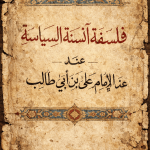 فلسفة أنسنة السياسة
عند
الإمام علي بن أبي طالب